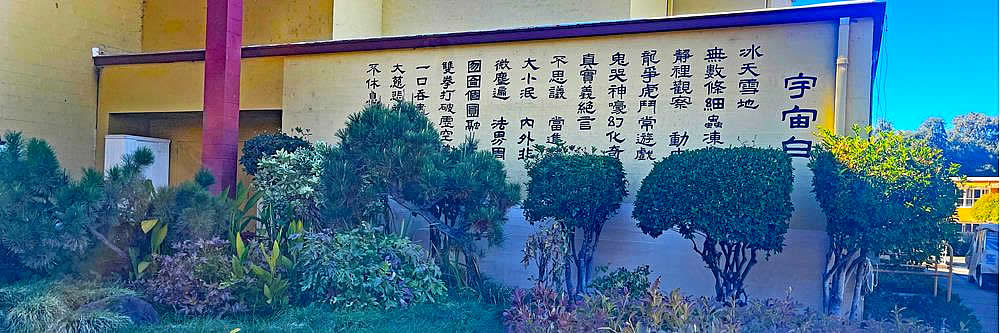 宇宙白
冰天雪地
無數條細蟲凍
靜裡觀察 動中
龍爭虎鬥常遊戲
鬼哭神嚎幻化奇
真實義絕言
不思議 當進
大小泯 內外非
微塵遍 法界周
囫圇個圓融
雙拳打破虛空
一口吞
大慈悲
不休息